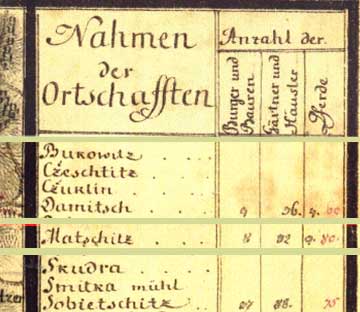 Nahmen
der
Ortschafften
Anzahl der.
Burger und
Bauren
Gärtner und
Häusler
Pferde
Bukowitz . . .
Czeschtitz . .
Czuklin . . .
Damitsch . . . 9
Matschitz . . 8 92 9. 80.
Skudra . . . .
Smitka mühl
Sobietschitz . . 27 88. 75